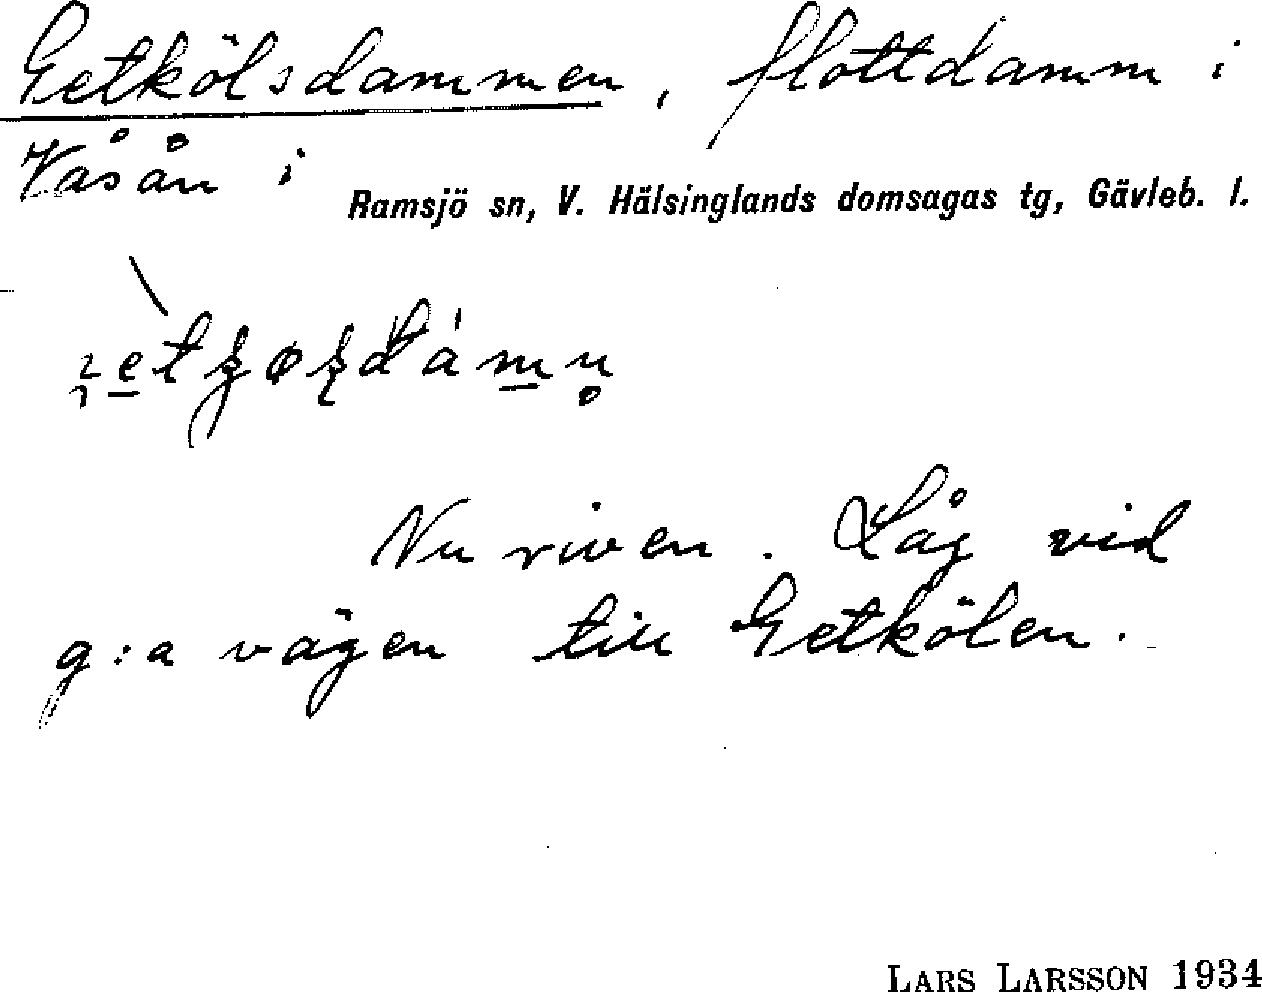 Getkölsdammen, flottdamm i
Våsån i
Ramsjö sn, V. Hälsinglands domsagas tg, Gävleb. l.
Nu riven. Låg vid
g:a vägen till Getkölen.
LARS LARSSON 1934